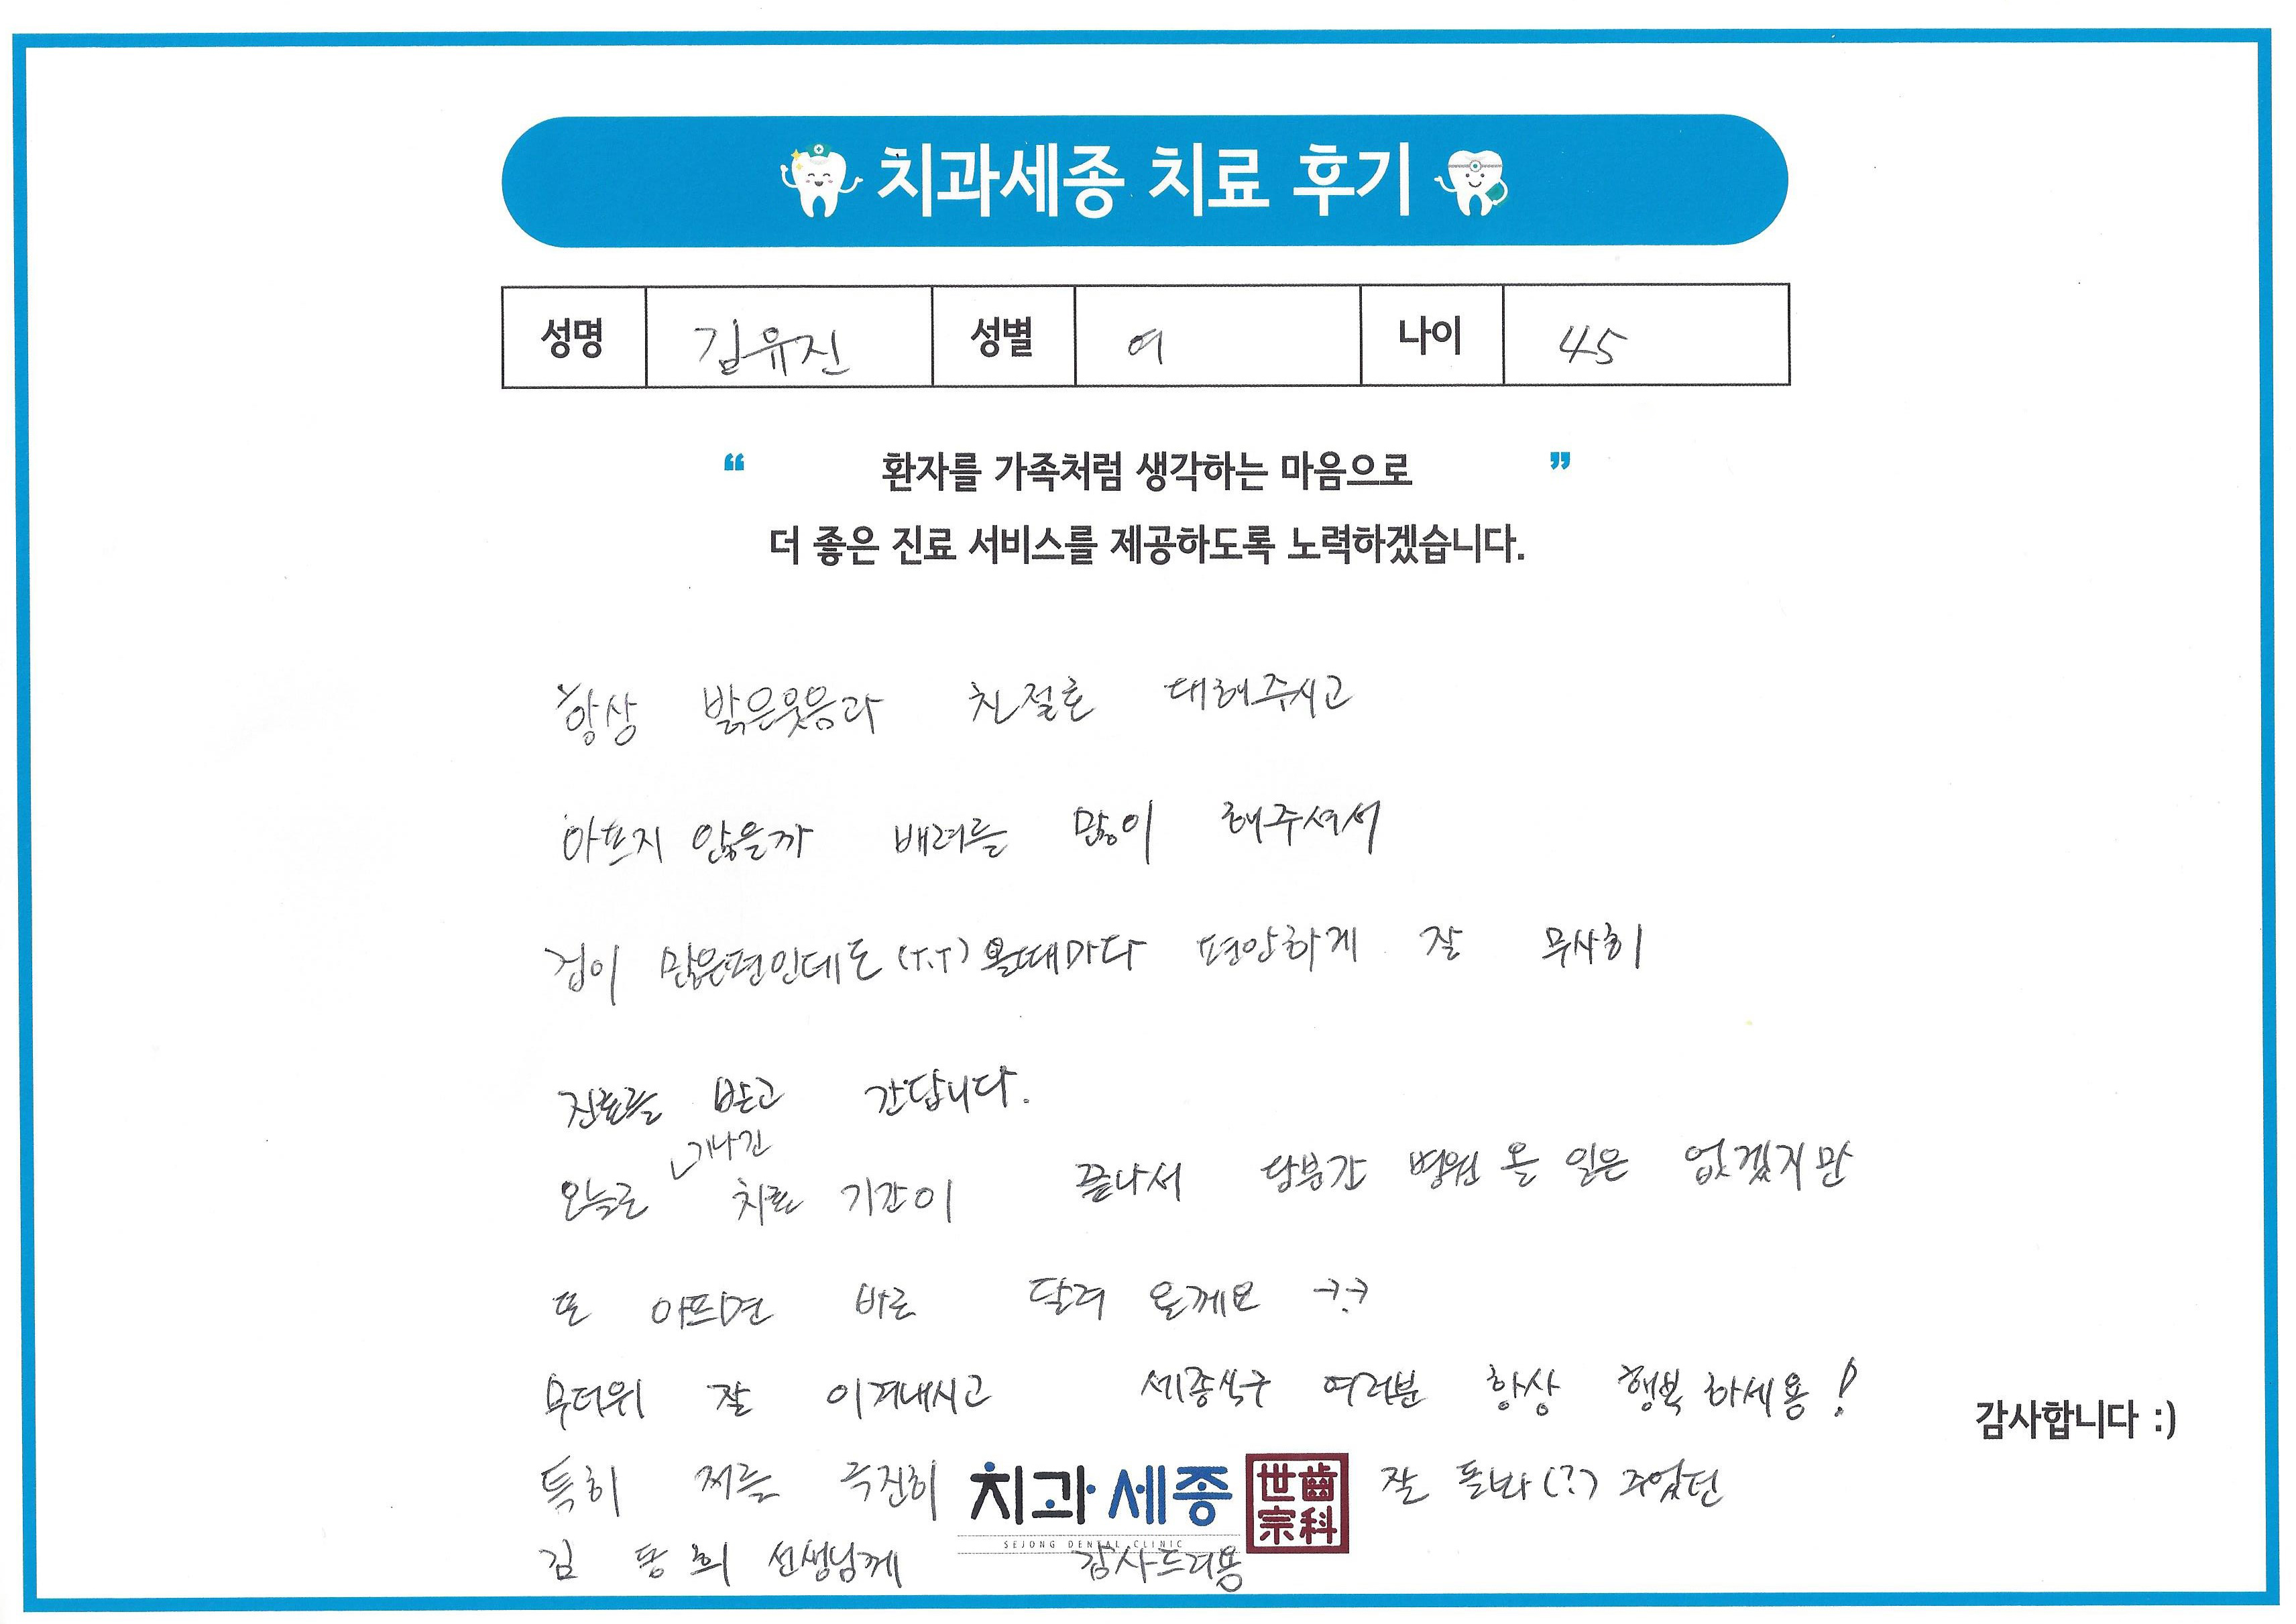 치과세종 치료 후기
성명 김유진 성별 여 나이 45
“ 환자를 가족처럼 생각하는 마음으로 ”
더 좋은 진료 서비스를 제공하도록 노력하겠습니다.
항상 밝은웃음과 친절로 대해주시고
아프지 않을까 배려를 많이 해주셔서
겁이 많은편인데도 (T.T) 올때마다 편안하게 잘 무사히
진료를 받고 간답니다.
오늘로 기나긴 치료 기간이 끝나서 당분간 병원 올 일은 없겠지만
또 아프면 바로 달려 올께요 ㅋㅋ
무더위 잘 이겨내시고 세종식구 여러분 항상 행복 하세용!
감사합니다 :)
특히 저를 극진히 잘 돌봐(?) 주었던
치과세종 世齒宗科
SEJONG DENTAL CLINIC
김 동 희 선생님께 감사드려용